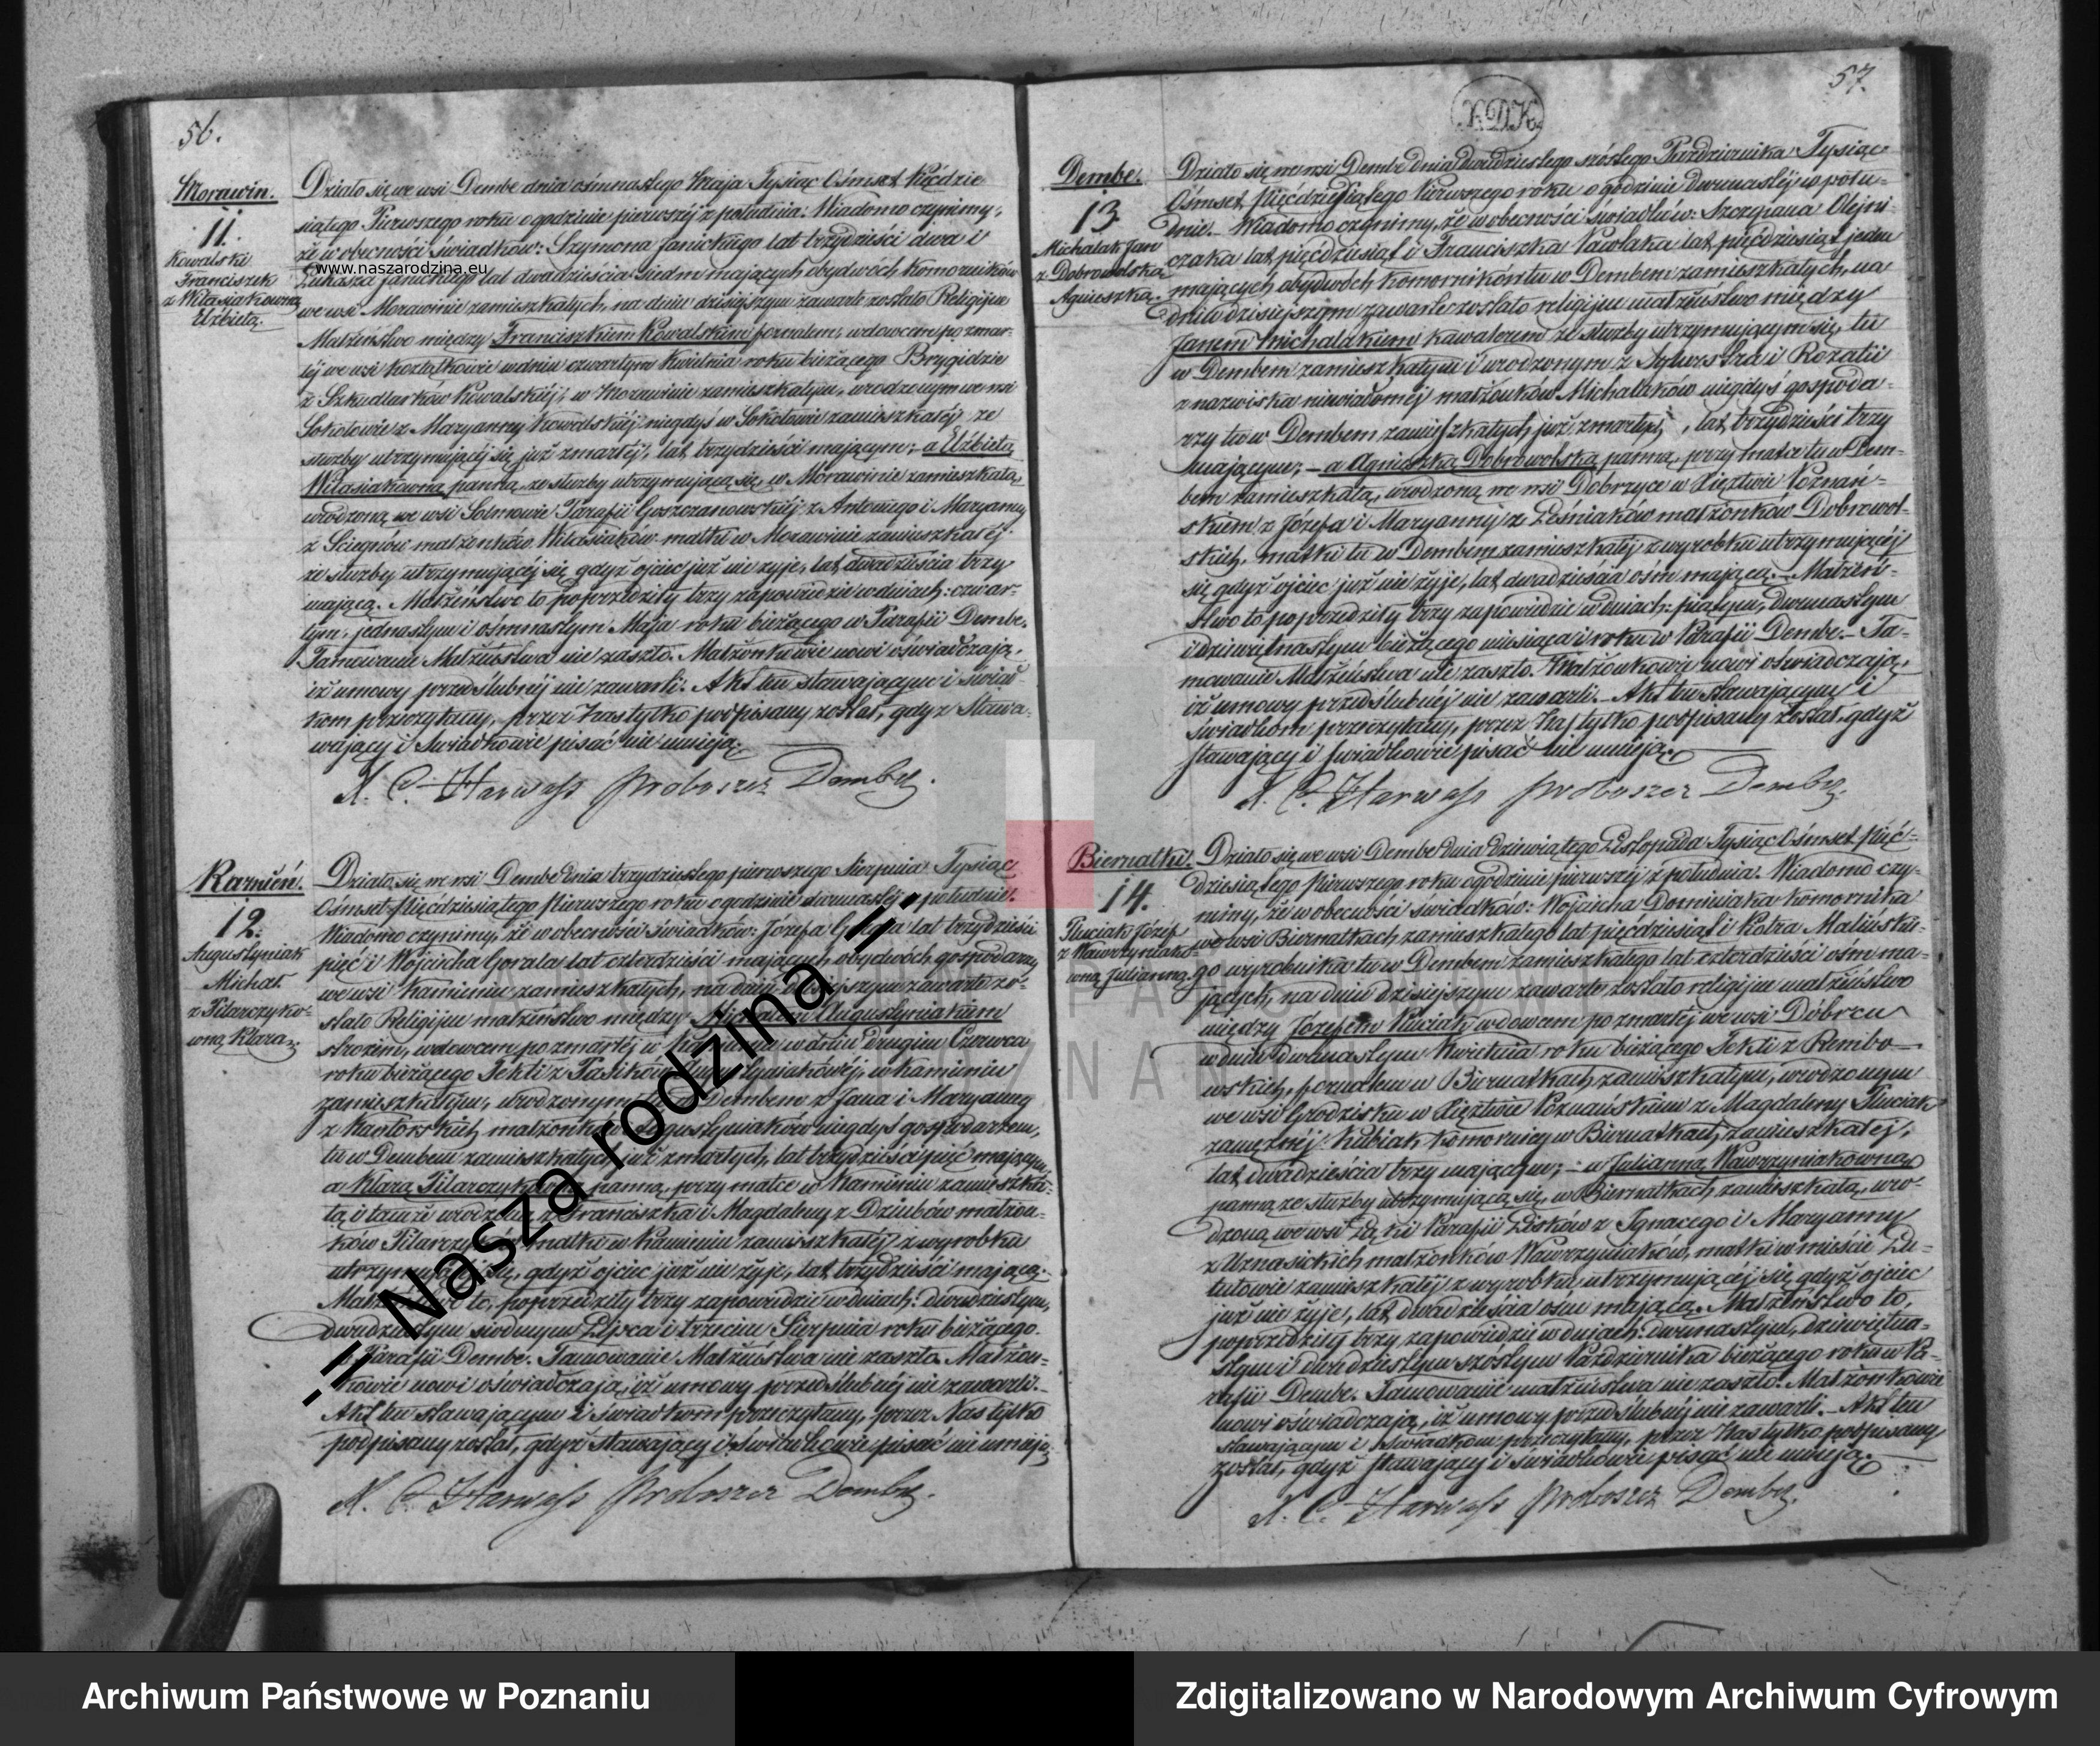 56.
Morawin.
11.
Kowalski
Franciszek
z Witasiakowną
Elżbietą.
Działo się we wsi Dembe dnia ośmnastego Maja Tysiąc Ośmset Pięćdzie
siątego Pierwszego roku o godzinie pierwszéj z południa. Wiadomo czynimy,
że w obecności świadków: Szymona Janickiego lat trzydzieści dwa i
www.naszarodzina.eu
Łukasza Janickiego lat dwadzieścia siedm mających obydwóch Komorników
we wsi Morawinie zamieszkałych, na dniu dzisiejszym zawarte zostało Religijne
Małżeństwo między Franciszkiem Kowalskim fornalem, wdowcem po zmar-
łéj we wsi Koźlątkowie w dniu czwartym Kwietnia roku bieżącego Brygidzie
z Szkudlarków Kowalskiéj, w Morawinie zamieszkałym, urodzonym we wsi
Sokołowie z Maryanny Kowalskiéj niegdyś w Sokołowie zamieszkałéj ze
służby utrzymującéj się już zmarłéj, lat trzydzieści mającym; a Elżbietą
Witasiakówną panną, ze służby utrzymującą się, w Morawinie zamieszkałą,
urodzoną we wsi Parafii Goszczanowskiéj z Antoniego i Maryanny
z Sciegnów małżonków Witasiaków matki w Morawinie zamieszkałéj
ze służby utrzymującéj się gdyż ojciec już nie żyje, lat dwadzieścia trzy
mającą. Małżeństwo to poprzedziły trzy zapowiedzie w dniach: czwar-
tym, jednastym i ośmnastym Maja roku bieżącego w Parafii Dembe.
Tamowanie Małżeństwa nie zaszło. Małżonkowie nowi oświadczają,
iż umowy przedślubnéj nie zawarli. Akt ten stawającym i świad-
kom przeczytany, przez Nas tylko podpisany został, gdyż Stawa-
wający i Świadkowie pisać nie umieją.
X. C. Harwass Proboszcz Dembey.
Kamień.
12.
Augustyniak
Michał
z Pilarczyko-
wną Klarą.
Działo się we wsi Dembe dnia trzydziestego pierwszego Sierpnia Tysiąc
Ośmset Pięćdziesiątego Pierwszego roku o godzinie dwunastéj w południe.
Wiadomo czynimy, że w obecności świadków: Józefa lat trzydzieści
pięć i Wojciecha Gorala lat czterdzieści mających obydwóch gospodarzy
we wsi Kamieniu zamieszkałych, na dniu dzisiejszym zawarte zo-
stało Religijne małżeństwo między Michałem Augustyniakiem
stróżem, wdowcem po zmarłéj w Kamieniu w dniu drugim Czerwca
roku bieżącego Tekli z Pasików Augustyniakówéj, w Kamieniu
zamieszkałym, urodzonym tu w Dembem z Jana i Maryanny
z Kantorskich małżonków Augustyniaków niegdyś gospodarzem,
tu w Dembem zamieszkałych już zmarłych, lat trzydzieści pięć mającym,
a Klarą Pilarczykówną panną, przy matce w Kamieniu zamieszka-
łą i tamże urodzoną z Franciszka i Magdaleny z Dziubów małżon-
ków Pilarczyków matki w Kamieniu zamieszkałéj z wyrobku
utrzymującéj się, gdyż ojciec już nie żyje, lat trzydzieści mającą.
Małżeństwo to, poprzedziły trzy zapowiedzie w dniach: dwudziestym,
dwudziestym siódmym Lipca i trzecim Sierpnia roku bieżącego.
w Parafii Dembe. Tamowanie Małżeństwa nie zaszło. Małżon-
kowie nowi oświadczają, iż umowy przedślubnéj nie zawarli.
Akt ten stawającym i świadkom przeczytany, przez Nas tylko
podpisany został, gdyż stawający i świadkowie pisać nie umieją.
X. C. Harwass Proboszcz Dembey.
-=Nasza rodzina=-
57.
XDK
Dembe.
13
Michalak Jan
z Dobrowolską
Agnieszką.
Działo się we wsi Dembe dnia dwudziestego szóstego Października Tysiąc
Ośmset Pięćdziesiątego Pierwszego roku o godzinie dwunastéj w połu-
dnie. Wiadomo czynimy, że w obecności świadków: Szczepana Olejni-
czaka lat pięćdziesiąt i Franciszka Pawlaka lat pięćdziesiąt jeden
mających obydwóch Komorników tu w Dembem zamieszkałych, na
dniu dzisiejszym zawarte zostało religijne małżeństwo między
Janem Michalakiem kawalerem ze służby utrzymującym się, tu
w Dembem zamieszkałym i urodzonym z Sylwestra i Rozalii
z nazwiska niewiadoméj małżonków Michalaków niegdyś gospoda-
rzy tu w Dembem zamieszkałych już zmarłych, lat trzydzieści trzy
mającym; – a Agnieszką Dobrowolską panną, przy matce tu w Dem-
bem zamieszkałą, urodzoną we wsi Dobrzyce w Xięztwie Poznań-
skiem z Józefa i Maryanny z Leśniaków małżonków Dobrowol-
skich, matki tu w Dembem zamieszkałéj z wyrobku utrzymującéj
się gdyż ojciec już nie żyje, lat dwadzieścia ośm mającą. – Małżeń-
stwo to poprzedziły trzy zapowiedzie w dniach: piątym, dwunastym
i dziewiętnastym bieżącego miesiąca i roku w Parafii Dembe. – Ta-
mowanie Małżeństwa nie zaszło. Małżonkowie nowi oświadczają,
iż umowy przedślubnéj nie zawarli. – Akt ten stawającym i
świadkom przeczytany, przez Nas tylko podpisany został, gdyż
stawający i świadkowie pisać nie umieją.
X. C. Harwass Proboszcz Dembey.
Biernatki.
14.
Pluciak Józef
z Wawrzyniako-
wną Julianną.
Działo się we wsi Dembe dnia dziewiątego Listopada Tysiąc Ośmset Pięć-
dziesiątego Pierwszego roku o godzinie pierwszéj z południa. Wiadomo czy-
nimy, że w obecności świadków: Wojciecha Domisiaka komornika
we wsi Biernatkach zamieszkałego lat pięćdziesiąt i Piotra Malińskie-
go wyrobnika tu w Dembem zamieszkałego lat czterdzieści ośm ma-
jących, na dniu dzisiejszym zawarte zostało religijne małżeństwo
między Józefem Pluciak wdowcem po zmarłéj we wsi Dóbrcu
w dniu dwunastym Kwietnia roku bieżącego Tekli z Rembo-
wskich, fornalem w Biernatkach zamieszkałym, urodzonym
we wsi Grodzisku w Xięztwie Poznańskim z Magdaleny Pluciak
zamężnéj Kubiak komornicy w Biernatkach zamieszkałéj,
lat dwadzieścia trzy mającym; – a Julianną Wawrzyniakowną
panną ze służby utrzymującą się, w Biernatkach zamieszkałą, uro-
dzoną we wsi Żąki Parafii Lisków z Ignacego i Maryanny
z Uznasickich małżonków Wawrzyniaków, matki w mieście Zdu-
tułowie zamieszkałéj z wyrobku utrzymującéj się, gdyż ojciec
już nie żyje, lat dwadzieścia ośm mającą. Małżeństwo to,
poprzedziły trzy zapowiedzie w dniach: dwunastym, dziewiętna-
stym i dwudziestym szóstym Października bieżącego roku w Pa-
rafii Dembe. Tamowanie małżeństwa nie zaszło. Małżonkowie
nowi oświadczają, iż umowy przedślubnéj nie zawarli. – Akt ten
stawającym i świadkom przeczytany, przez Nas tylko podpisany
został, gdyż stawający i świadkowie pisać nie umieją.
X. C. Harwass Proboszcz Dembey.
Archiwum Państwowe w Poznaniu
Zdigitalizowano w Narodowym Archiwum Cyfrowym